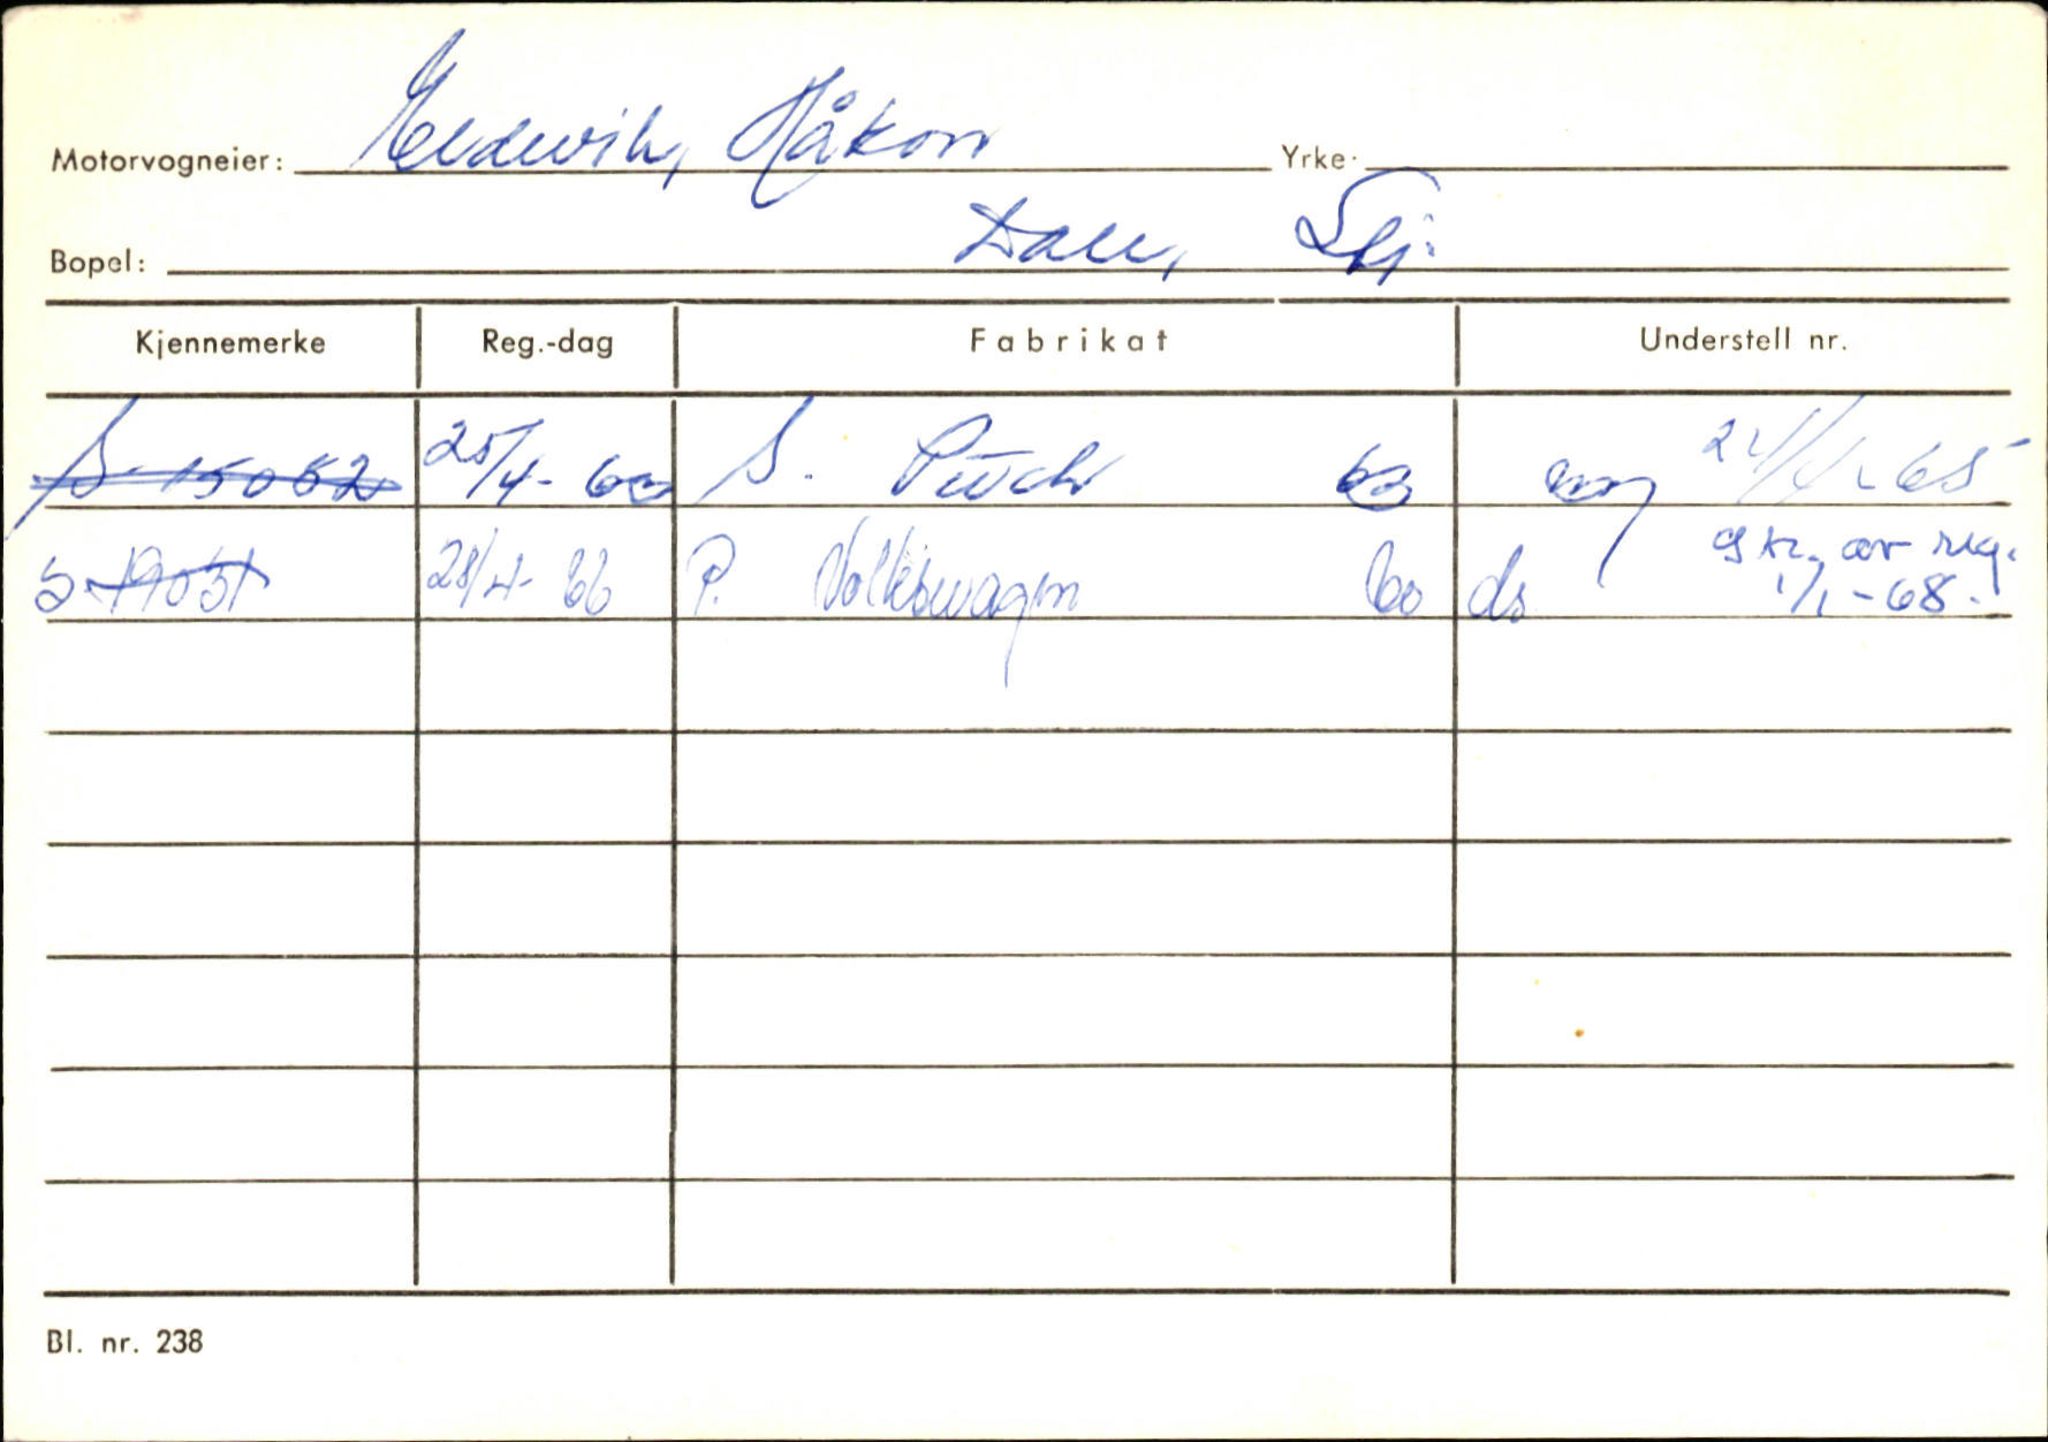 Motorvogneier: Eldevik, Håkon Yrke:
Bopel: Dale, Sfj.
Kjennemerke Reg.-dag Fabrikat Understell nr.
S-15052 25/4-63 S. Puch 63 /4-65
S-19051 28/4-66 P. Volkswagen 60 ds str. av reg.
1/1-68.
Bl. nr. 238